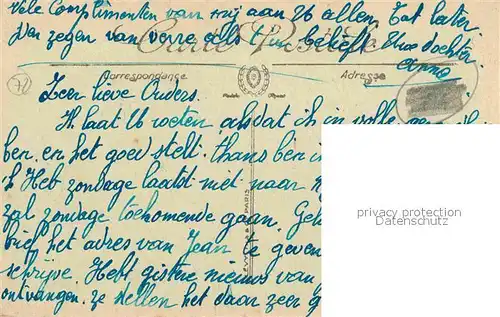 Vele Complimenten van mij aan U allen. Tot later.
Uw zegen van verre als 't U belieft Uwe dochter
Carte Postale
Correspondance
Adresse
Zeer lieve Ouders.
K laat U weten als dat ik in volle
ben en het goed stelt. Thans ben i
'k Heb zondage laatst niet naar
zal zondage toekomende gaan. Ge
brief het adres van Jean te geven
schrijve. Hebt gistre nieuws van
ontvangen. ze stellen het daar zeer g
privacy protection
Datenschutz
PARIS